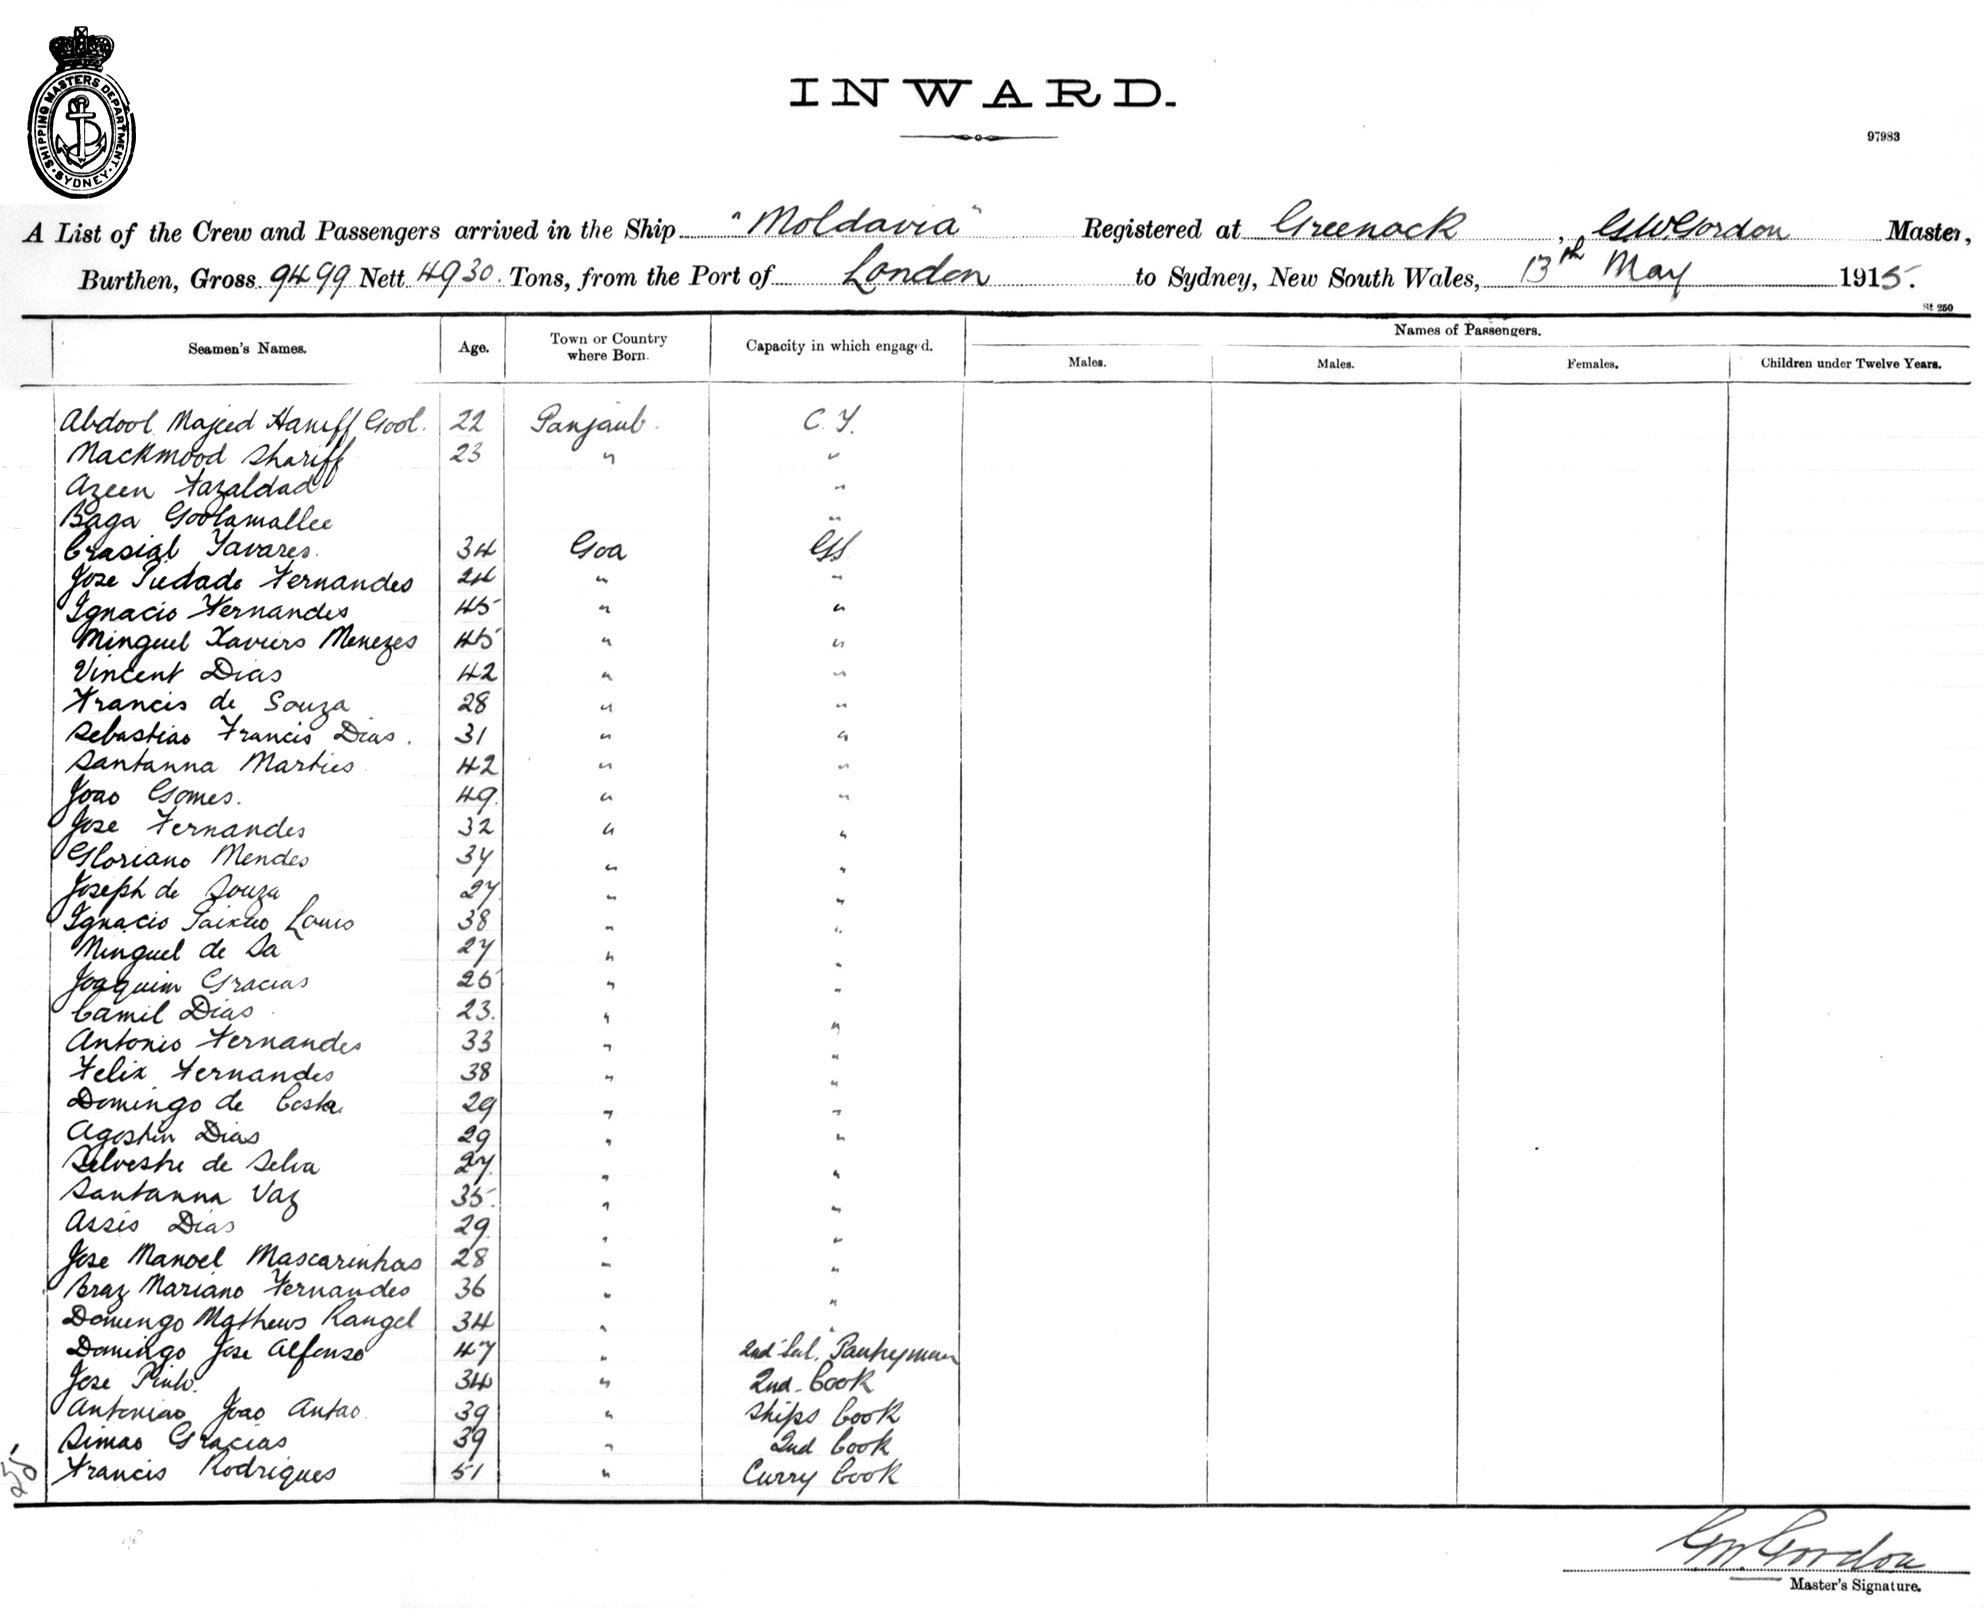 SHIPPING MASTERS DEPARTMENT
SYDNEY
INWARD.
97983
A List of the Crew and Passengers arrived in the Ship "Moldavia" Registered at Greenock, G.W. Gordon Master,
Burthen, Gross 9499 Nett 4930. Tons, from the Port of London to Sydney, New South Wales, 13th May 1915.
St 250
Seamen's Names. Age. Town or Country where Born. Capacity in which engaged. Names of Passengers.
Males. Males. Females. Children under Twelve Years.
Abdool Majeed Haniff Gool. 22 Panjaub. C. T.
Mackmood Shariff 23 " "
Azeen Fazaldad "
Baga Goolamallee "
Crasial Tavares. 34 Goa GS
Jose Piedade Fernandes 24 " "
Ignacio Fernandes 45 " "
Minguel Xaviers Menezes 45 " "
Vincent Dias 42 " "
Francis de Souza 28 " "
Sebastiao Francis Dias. 31 " "
Santanna Marties 42 " "
Joao Gomes. 49 " "
Jose Fernandes 32 " "
Floriano Mendes 37 " "
Joseph de Souza 27 " "
Ignacio Paixao Louis 38 " "
Minguel de Sa 27 " "
Joaquim Gracias 25 " "
Camil Dias 23. " "
Antonio Fernandes 33 " "
Felix Fernandes 38 " "
Domingo de Costa 29 " "
Agostin Dias 29 " "
Selvestre de Selva 27 " "
Santanna Vaz 35. " "
Assis Dias 29 " "
Jose Manoel Mascarinhas 28 " "
Braz Mariano Fernandes 36 " "
Domingo Mathews Rangel 34 " "
Domingo Jose Alfonso 47 " 2nd Sal. Pantryman
Jose Pinto. 34 " 2nd Cook
Antoniao Joao Antao. 39 " Ships Cook
Simao Gracias 39 " 2nd Cook
Francis Rodrigues 51 " Curry Cook
255
G.W. Gordon
Master's Signature.